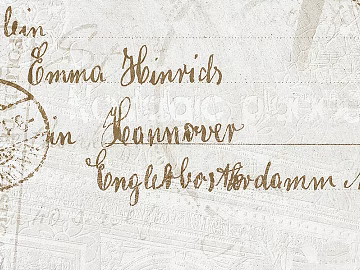 lein
Emma Hinrichs
in Hannover
Englebosterdamm